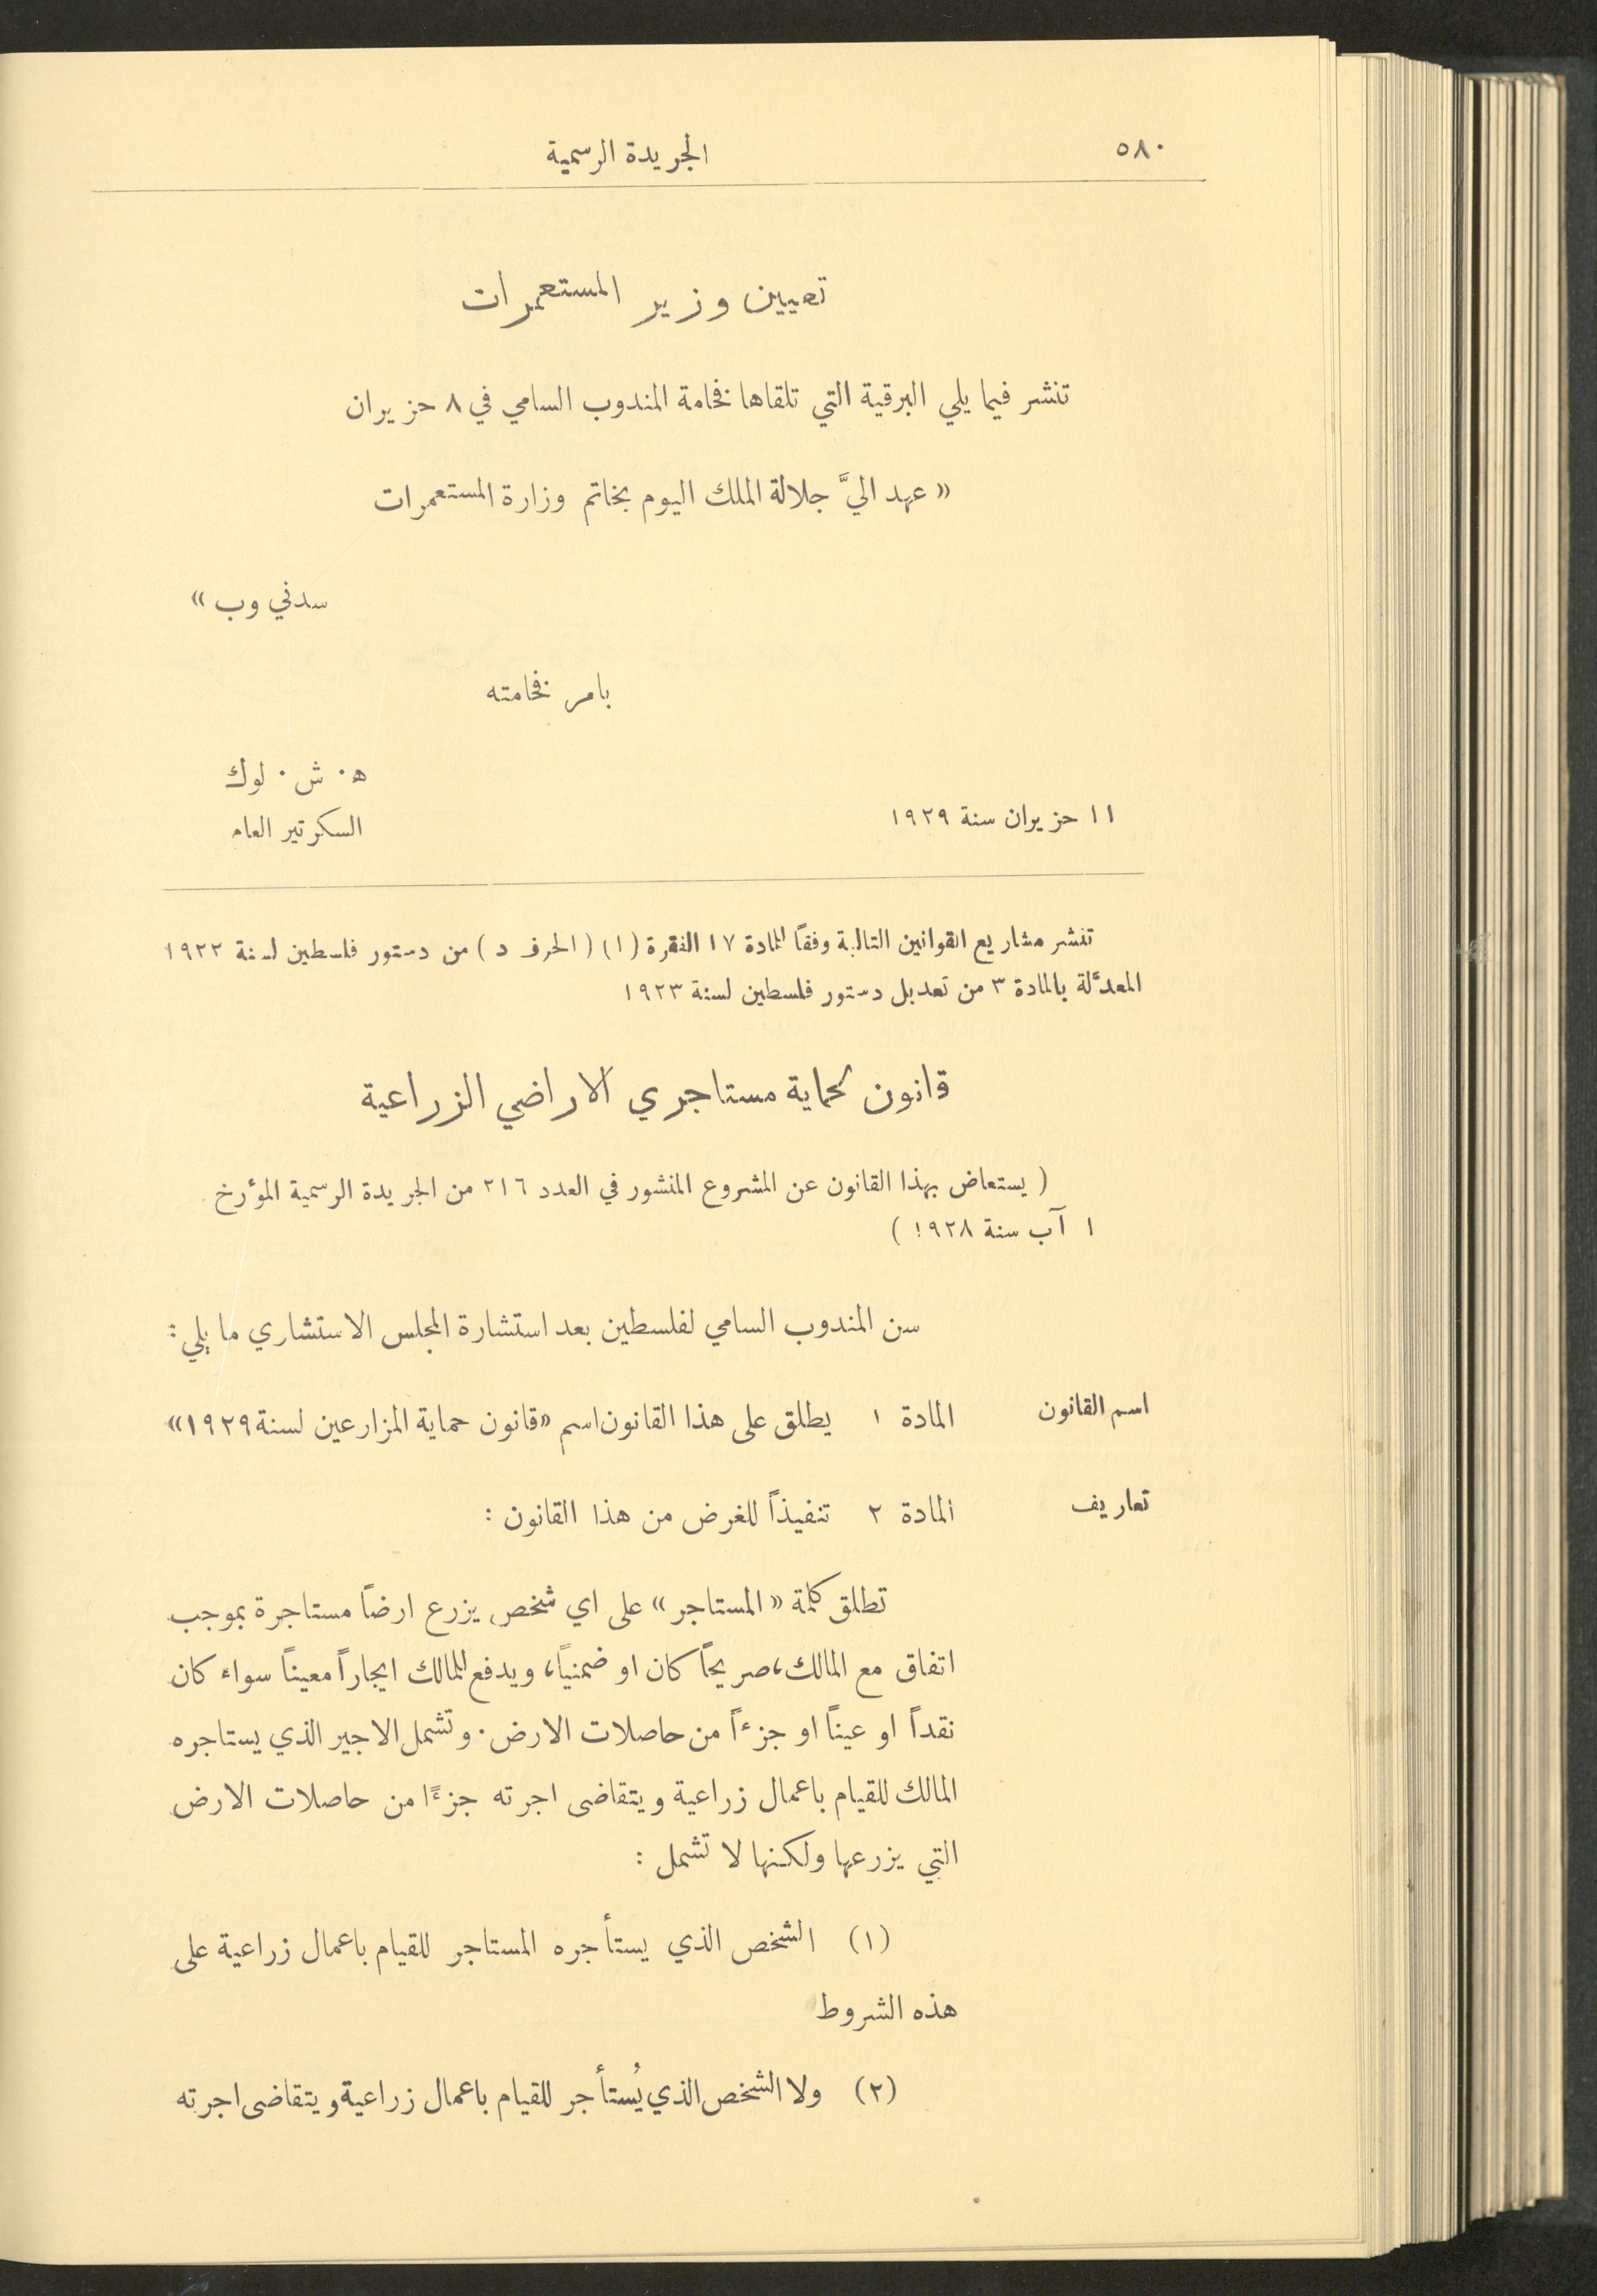 ٥٨٠
الجريدة الرسمية
تعيين وزير المستعمرات
تنشر فيما يلي البرقية التي تلقاها فخامة المندوب السامي في ٨ حزيران
« عهد اليَّ جلالة الملك اليوم بخاتم وزارة المستعمرات
سدني وب »
بامر فخامته
ه٠ ش٠ لوك
١١ حزيران سنة ١٩٢٩
السكرتير العام
تنشر مشاريع القوانين التالية وفقاً للمادة ١٧ الفقرة (١) (الحرف د) من دستور فلسطين لسنة ١٩٢٢
المعدَّلة بالمادة ٣ من تعديل دستور فلسطين لسنة ١٩٢٣
قانون لحماية مستاجري الاراضي الزراعية
( يستعاض بهذا القانون عن المشروع المنشور في العدد ٢١٦ من الجريدة الرسمية المؤرخ
١ آب سنة ١٩٢٨ )
سن المندوب السامي لفلسطين بعد استشارة المجلس الاستشاري ما يلي :
اسم القانون
المادة ١ يطلق على هذا القانون اسم «قانون حماية المزارعين لسنة ١٩٢٩»
تعاريف
المادة ٢ تنفيذاً للغرض من هذا القانون :
تطلق كلمة « المستاجر » على اي شخص يزرع ارضاً مستاجرة بموجب
اتفاق مع المالك، صريحاً كان او ضمنياً، ويدفع للمالك ايجاراً معيناً سواء كان
نقداً او عيناً او جزءاً من حاصلات الارض٠ وتشمل الاجير الذي يستاجره
المالك للقيام باعمال زراعية ويتقاضى اجرته جزءًا من حاصلات الارض
التي يزرعها ولكنها لا تشمل :
(١) الشخص الذي يستأجره المستاجر للقيام باعمال زراعية على
هذه الشروط
(٢) ولا الشخص الذي يُستأجر للقيام باعمال زراعية ويتقاضى اجرته